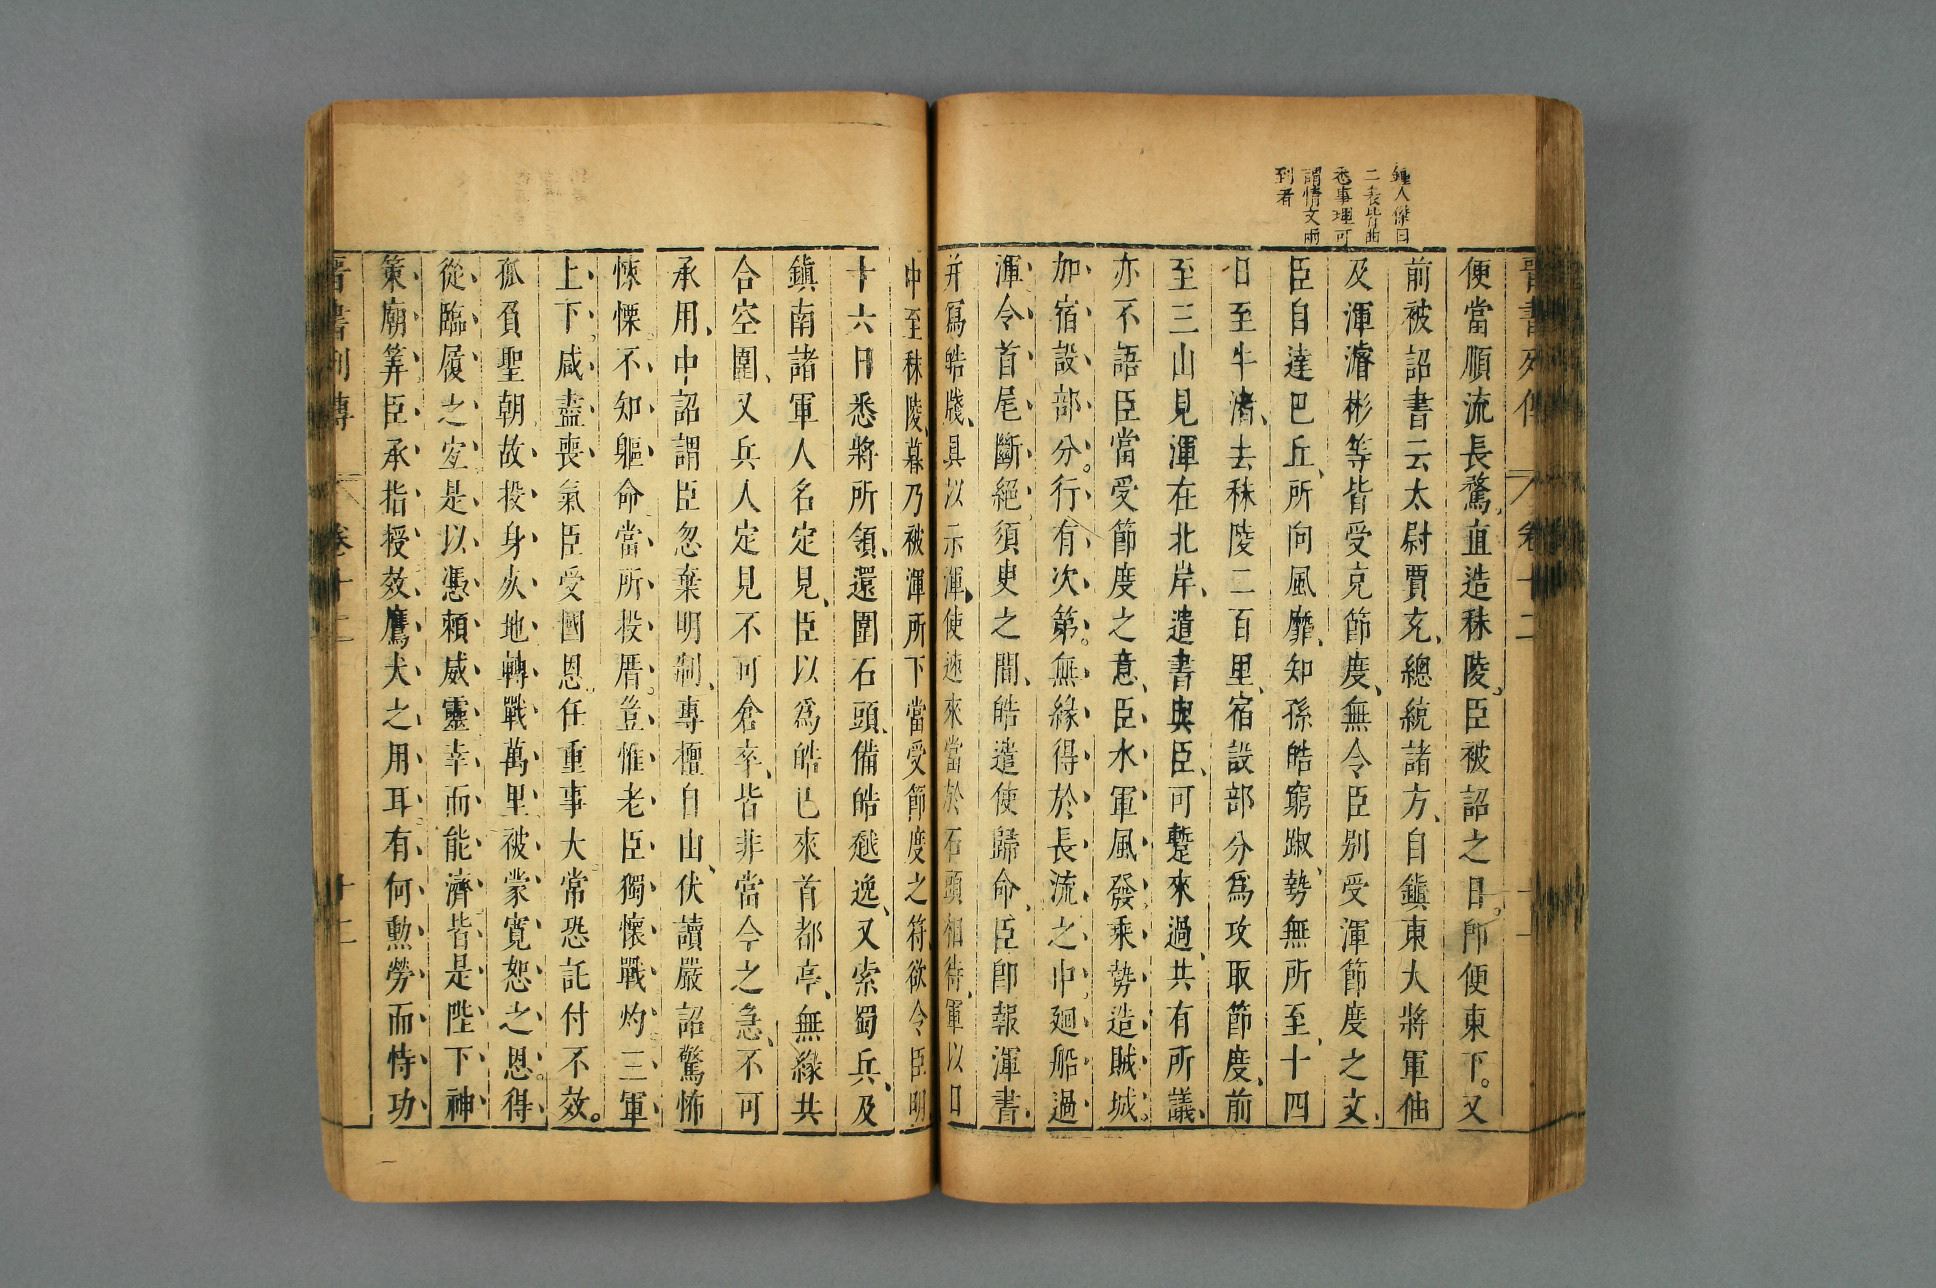 鍾人傑曰
二表皆曲
悉事理可
謂情文兩
到者
晉書列傳 卷十二
便當順流長騖直造秣陵、臣被詔之日。卽便東下。又
前被詔書云太尉賈充、總統諸方、自鎮東大將軍伷
及渾濬彬等皆受充節度、無令臣别受渾節度之文、
臣自達巴丘、所向風靡、知孫皓窮踧、勢無所至、十四
日至牛渚、去秣陵二百里、宿設部分爲攻取節度、前
至三山見渾在北岸、遣書與臣、可蹔來過、共有所議、
亦不語臣當受節度之意、臣水軍風發。乘勢造賊城。
加宿設部分。行有次第。無緣得於長流之中。廻船過
渾、令首尾斷絕。須臾之間、皓遣使歸命、臣卽報渾書、
并寫皓牋、具以示渾、使速來當於石頭相待、軍以日
中至秣陵、暮乃被渾所下當受節度之符、欲令臣明
十六日悉將所領、還圍石頭、備皓越逸、又索蜀兵、及
鎮南諸軍人名定見、臣以爲皓已來首都亭、無緣共
合空圍、又兵人定見不可倉卒、皆非當今之急、不可
承用、中詔謂臣忽棄明制、專擅自由、伏讀嚴詔驚怖
悚慄。不知軀命當所投厝。豈惟老臣獨懷戰灼三軍
上下。咸盡喪氣臣受國恩。任重事大常恐託付不效。
孤負聖朝故投身死地轉戰萬里被蒙寛恕之恩。得
從臨履之宜是以憑賴威靈幸而能濟皆是陛下神
策廟筭臣承指授效鷹犬之用耳有何勲勞而恃功
晉書列傳 卷十二 十二